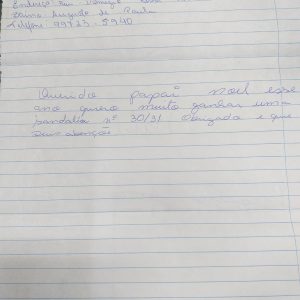 Endereço Rua
Bairro: Augusto de Paula
Telefone: 99723-5940
Querido papai noel esse
ano quero muito ganhar uma
sandalia nº 30/31 Obrigada e que
Deus abençoe